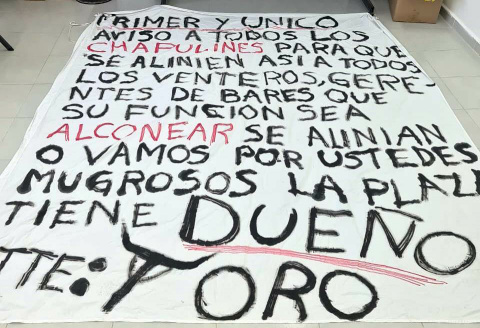 PRIMER Y UNICO
AVISO A TODOS LOS
CHAPULINES PARA QUE
SE ALINIEN ASI A TODOS
LOS VENTEROS, GERE-
NTES DE BARES QUE
SU FUNCION SEA
ALCONEAR SE ALINIAN
O VAMOS POR USTEDES
MUGROSOS LA PLAZA
TIENE DUEÑO
ATTE: TORO